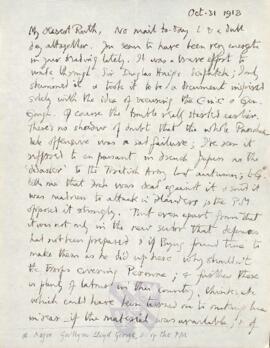 Oct. 31 1918
My dearest Ruth, No mail to-day & a dull
day altogether. You seem to have been very energetic
in your reading lately. It was a brave effort to
wade through Sir Douglas Haig's despatch; I only
skimmed it & took it to be a document inspired
solely with the idea of excusing the C in C & Gen.
Gough. Of course the British staff started earlier.
There's no shadow of doubt that the whole Passchen-
daele offensive was a sad failure; I've seen it
referred to en passant in French papers as the
'disaster' to the British Army last autumn; & G
tell me that Foch was dead against it & said it
was madness to attack in Flanders & the P.M
opposed it strongly. But even apart from that
it was not only in the new sector that defences
had not been prepared & if Byng found time to
make them as he did up here why shouldn't
the troops covering Peronne; & further there
is plenty of labour in this country, Chinks etc
which could have been used on
if the material was available;
Major Gwilym Lloyd George, s. of the P.M